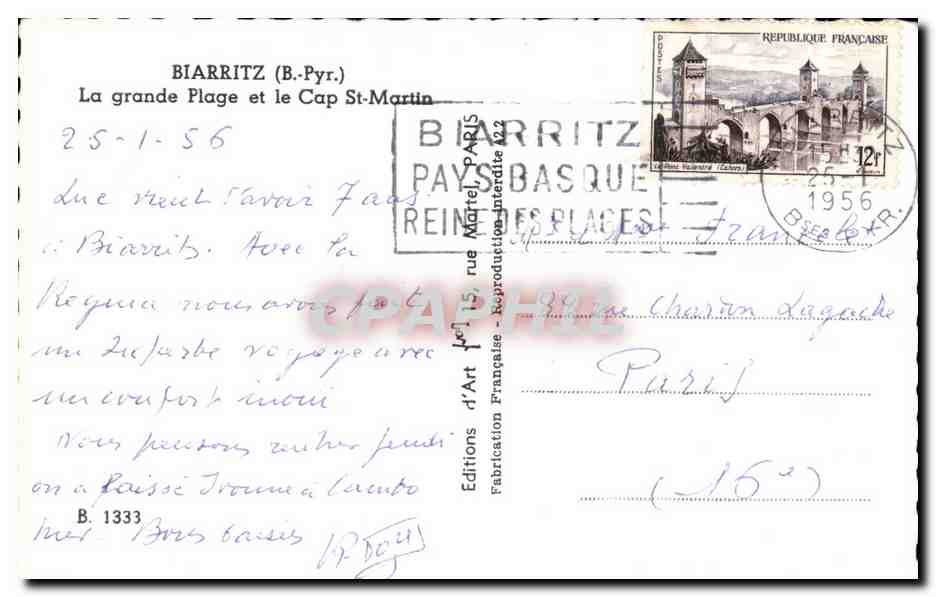 BIARRITZ (B.-Pyr.)
La grande Plage et le Cap St-Martin
25-1-56
Luc vient d'avoir 7 ans
à Biarritz. Avec la
Regina nous avons fait
un superbe voyage avec
un confort inoui
Nous pensons rentrer jeudi
on a laissé Ivonne à Cambo
hier. Bons baisers
B. 1333
Editions d'Art 15, rue Martel, PARIS
Fabrication Française - Reproduction Interdite A22
BIARRITZ
PAYS BASQUE
REINE DES PLAGES
POSTES
REPUBLIQUE FRANÇAISE
Le Pont Valentré (Cahors)
12F
25-1
1956
BSES PYR.
39 rue Chardon Lagache
Paris
(16e)
CPAPHIL